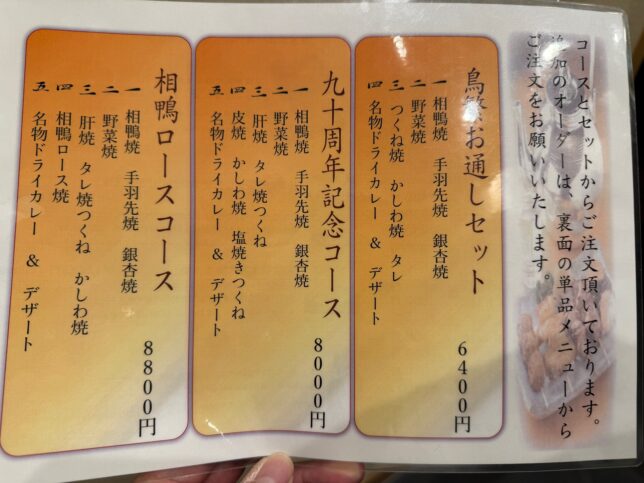 コースとセットからご注文頂いております。
追加のオーダーは、裏面の単品メニューから
ご注文をお願いいたします。
鳥繁お通しセット
一 相鴨焼 手羽先焼 銀杏焼
二 野菜焼
三 つくね焼 かしわ焼 タレ
四 名物ドライカレー & デザート
6400円
九十周年記念コース
一 相鴨焼 手羽先焼 銀杏焼
二 野菜焼
三 肝焼 タレ焼つくね
四 皮焼 かしわ焼 塩焼きつくね
五 名物ドライカレー & デザート
8000円
相鴨ロースコース
一 相鴨焼 手羽先焼 銀杏焼
二 野菜焼
三 肝焼 タレ焼つくね かしわ焼
四 相鴨ロース焼
五 名物ドライカレー & デザート
8800円